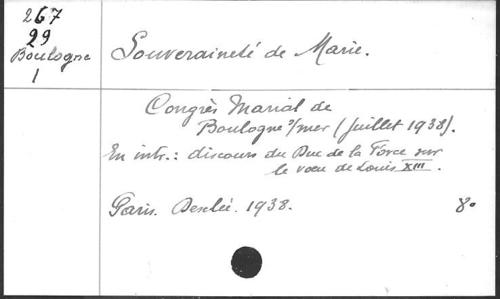 267
29
Boulogne
1
Souveraineté de Marie.
Congrès Marial de
Boulogne s/mer (juillet 1938).
En intr.: discours du Duc de la Force sur
le vœu de Louis XIII.
Paris. Desclée. 1938.
8º